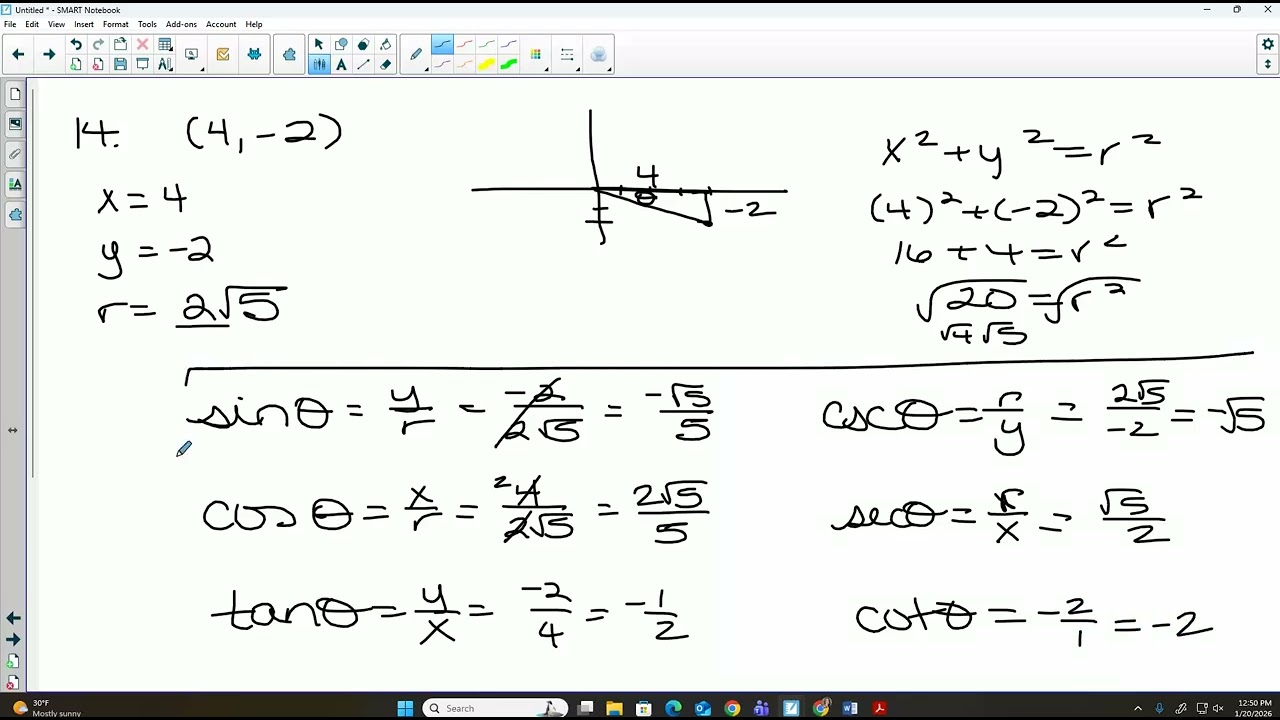 Untitled * - SMART Notebook
File Edit View Insert Format Tools Add-ons Account Help
14. (4, -2)
x = 4
y = -2
r = 2√5
4
θ
-2
x² + y² = r²
(4)² + (-2)² = r²
16 + 4 = r²
√20 = √r²
√4 √5
sinθ = y/r = -2/2√5 = -√5/5
cscθ = r/y = 2√5/-2 = -√5
cosθ = x/r = 2 4/2√5 = 2√5/5
secθ = r/x = √5/2
tanθ = y/x = -2/4 = -1/2
cotθ = -2/1 = -2
30°F
Mostly sunny
Search
12:50 PM
1/20/2026